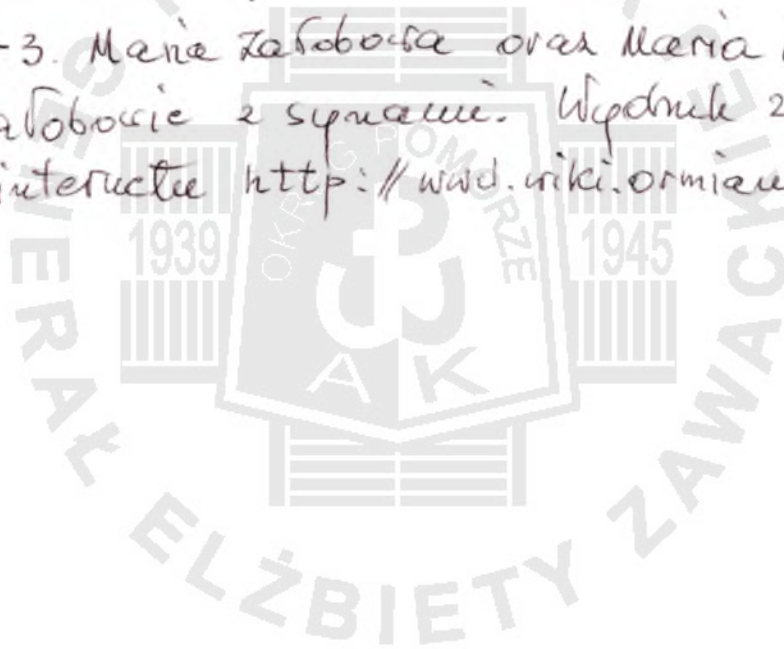 -3. Maria Załobowa oraz Maria
ałobowie z synami. Wydruk z
internetu http://www.wiki.ormian
OKRĘG POMORZE
1939
1945
AK
GENERAŁ ELŻBIETY ZAWACKIE